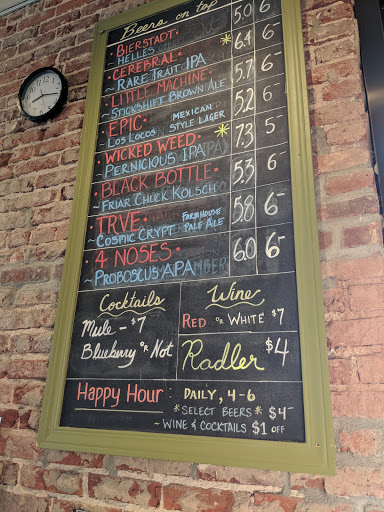 Beers on tap
• BIERSTADT • 5.0 6
~ HELLES
• CEREBRAL • * 6.4 6-
~ RARE TRAIT IPA
• LITTLE MACHINE • 5.7 6-
~ STICKSHIFT BROWN ALE
• EPIC • 5.2 6-
~ LOS LOCOS MEXICAN STYLE LAGER
• WICKED WEED • * 7.3 5
~ PERNICIOUS IPA
• BLACK BOTTLE • 5.3 6-
~ FRIAR CHUCK KOLSCH
• TRVE • 5.8 6-
~ COSMIC CRYPT FARMHOUSE PALE ALE
• 4 NOSES • 6.0 6-
~ PROBOSCUS APA
Cocktails
Mule - $7
Blueberry OR Not
Wine
RED OR WHITE $7
Radler $4
HAPPY HOUR: DAILY, 4-6
* SELECT BEERS * $4-
~ WINE & COCKTAILS $1 OFF